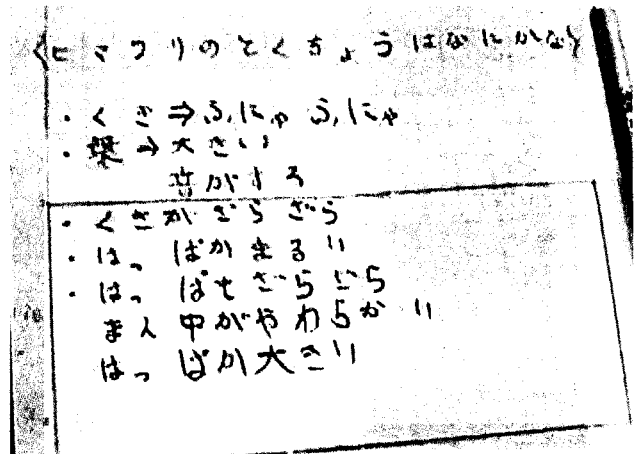 〈ヒマワリのとくちょうはなにかな〉
・くき⇒ふにゃふにゃ
・葉⇒大きい
音がする
・くきがざらざら
・はっぱがまるい
・はっぱもざらざら
まん中がやわらかい
はっぱが大きい